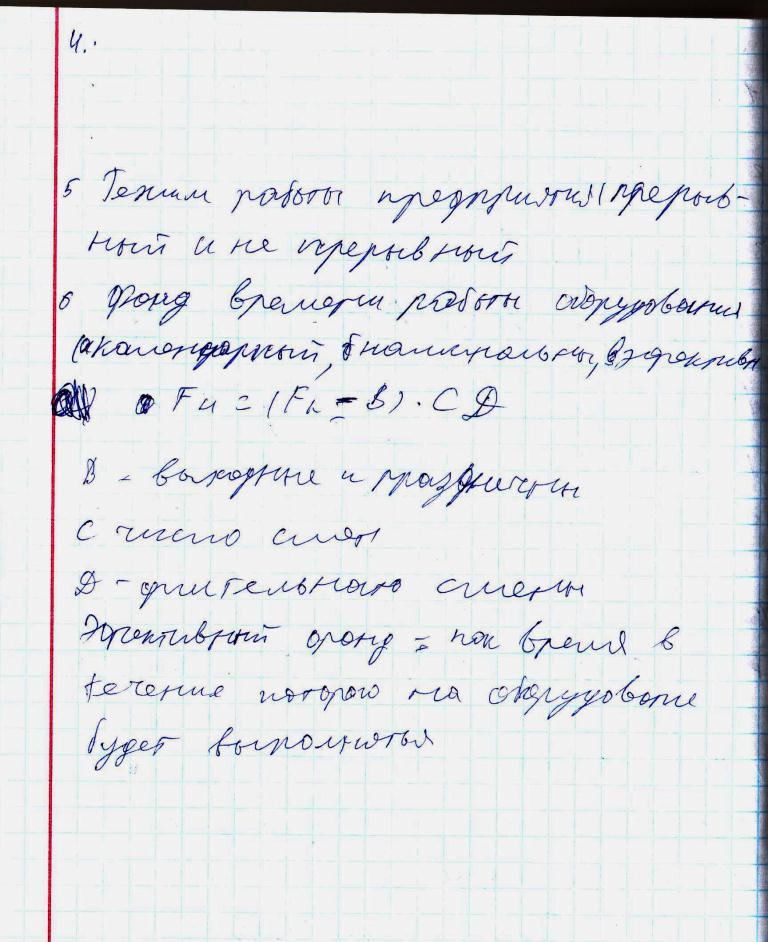 4.
5 Режим работы предприятия (прерыв-
ный и не прерывный
6 Фонд времени работы оборудования
(а календарный, б наминальны, в эффективн
Fн = (Fк - В) · С Д
В - выходные и праздничны
С число смен
Д - длительного смены
Эффективный фонд = пок время в
течение которого на оборудование
будет выполнятья